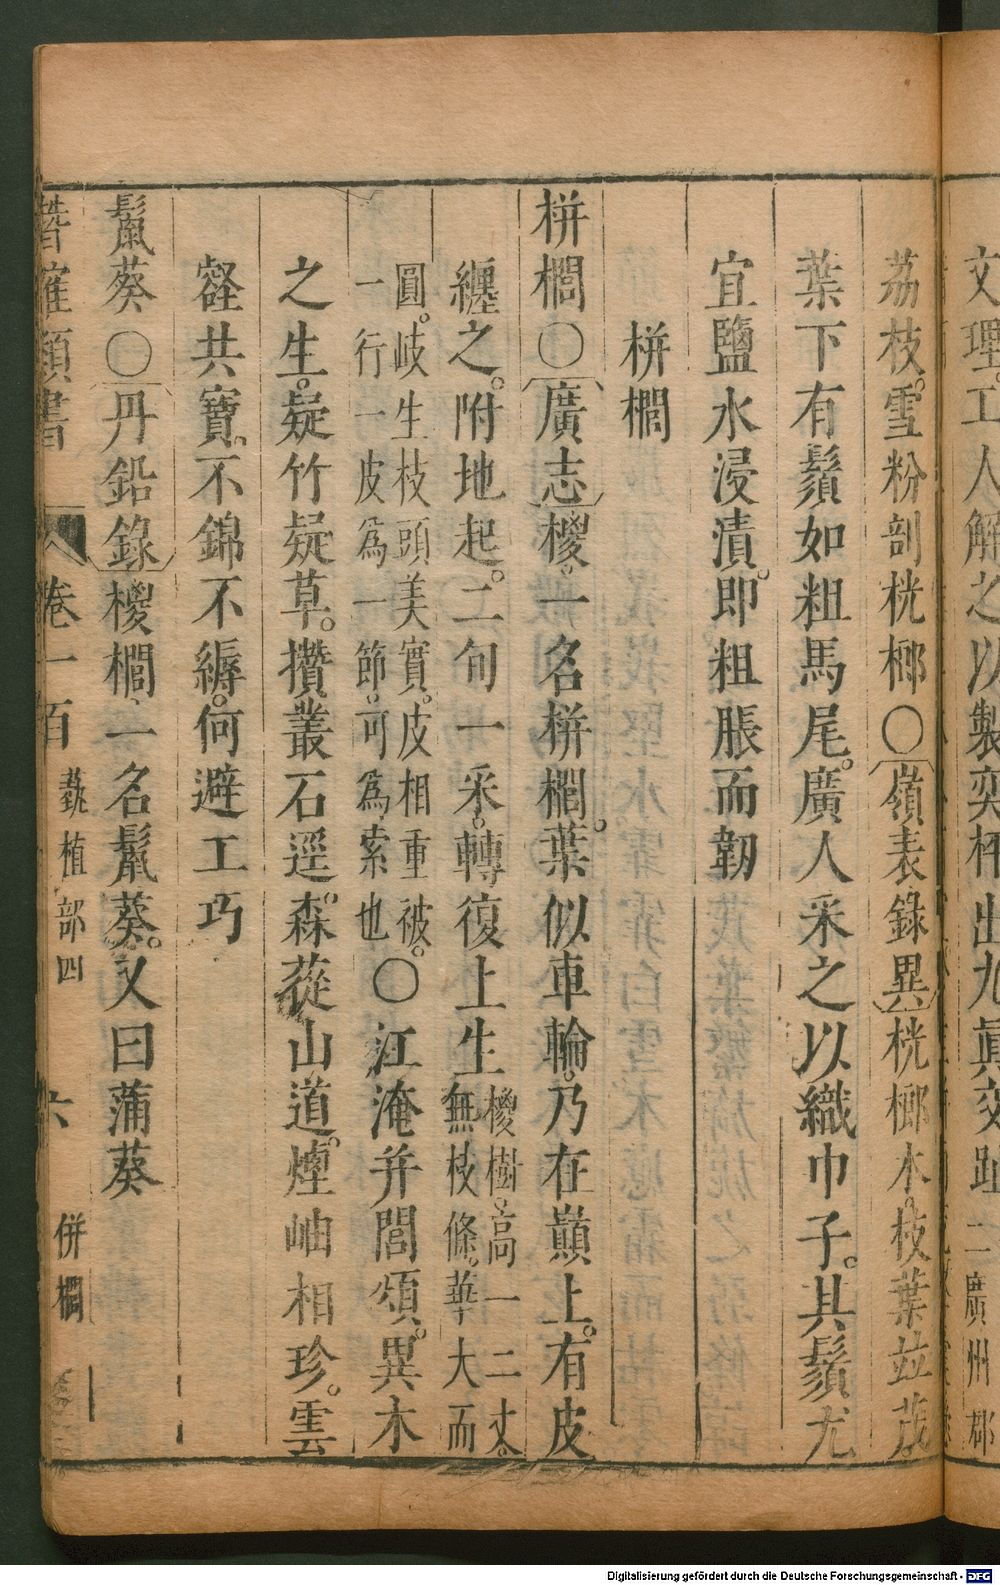 文理工人解之以製奕枰出九眞交趾 二廣州郡
荔枝。雪粉剖桄榔〇嶺表錄異桄榔木。枝葉竝茂
葉下有鬚如粗馬尾。廣人采之以織巾子。其鬚尤
宜鹽水浸漬。即粗脹而韌
栟櫚
栟櫚〇廣志椶。一名栟櫚。葉似車輪。乃在巔上。有皮
纏之。附地起。二旬一采。轉復上生 椶樹。高一二丈。無枝條。華大而
圓。岐生枝頭美實。皮相重被。一行一皮爲一節。可爲索也 〇江淹并閭頌。異木
之生。疑竹疑草。攢叢石逕。森蓯山道。煙岫相珍。雲
壑共寶。不錦不縟。何避工巧
鬣葵〇丹鉛錄椶櫚、一名鬣葵。又曰蒲葵
潛確類書 卷一百 蓺植部四 六 併櫚
Digitalisierung gefördert durch die Deutsche Forschungsgemeinschaft - DFG